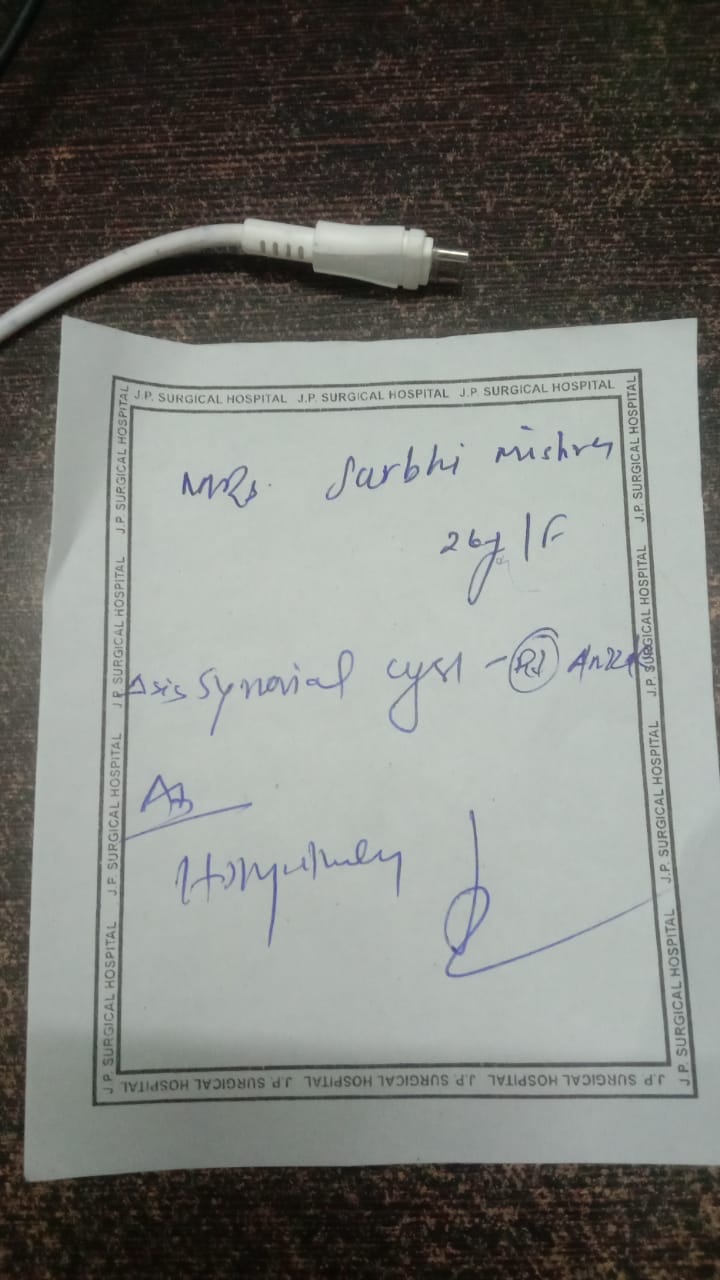 J.P. SURGICAL HOSPITAL J.P. SURGICAL HOSPITAL J.P. SURGICAL HOSPITAL
J.P. SURGICAL HOSPITAL J.P. SURGICAL HOSPITAL J.P. SURGICAL HOSPITAL J.P. SURGICAL HOSPITAL
MRs. Surbhi Mishra
26y/F
Synovial cyst - Rt Ankle
J.P. SURGICAL HOSPITAL J.P. SURGICAL HOSPITAL J.P. SURGICAL HOSPITAL J.P. SURGICAL HOSPITAL
J.P. SURGICAL HOSPITAL J.P. SURGICAL HOSPITAL J.P. SURGICAL HOSPITAL